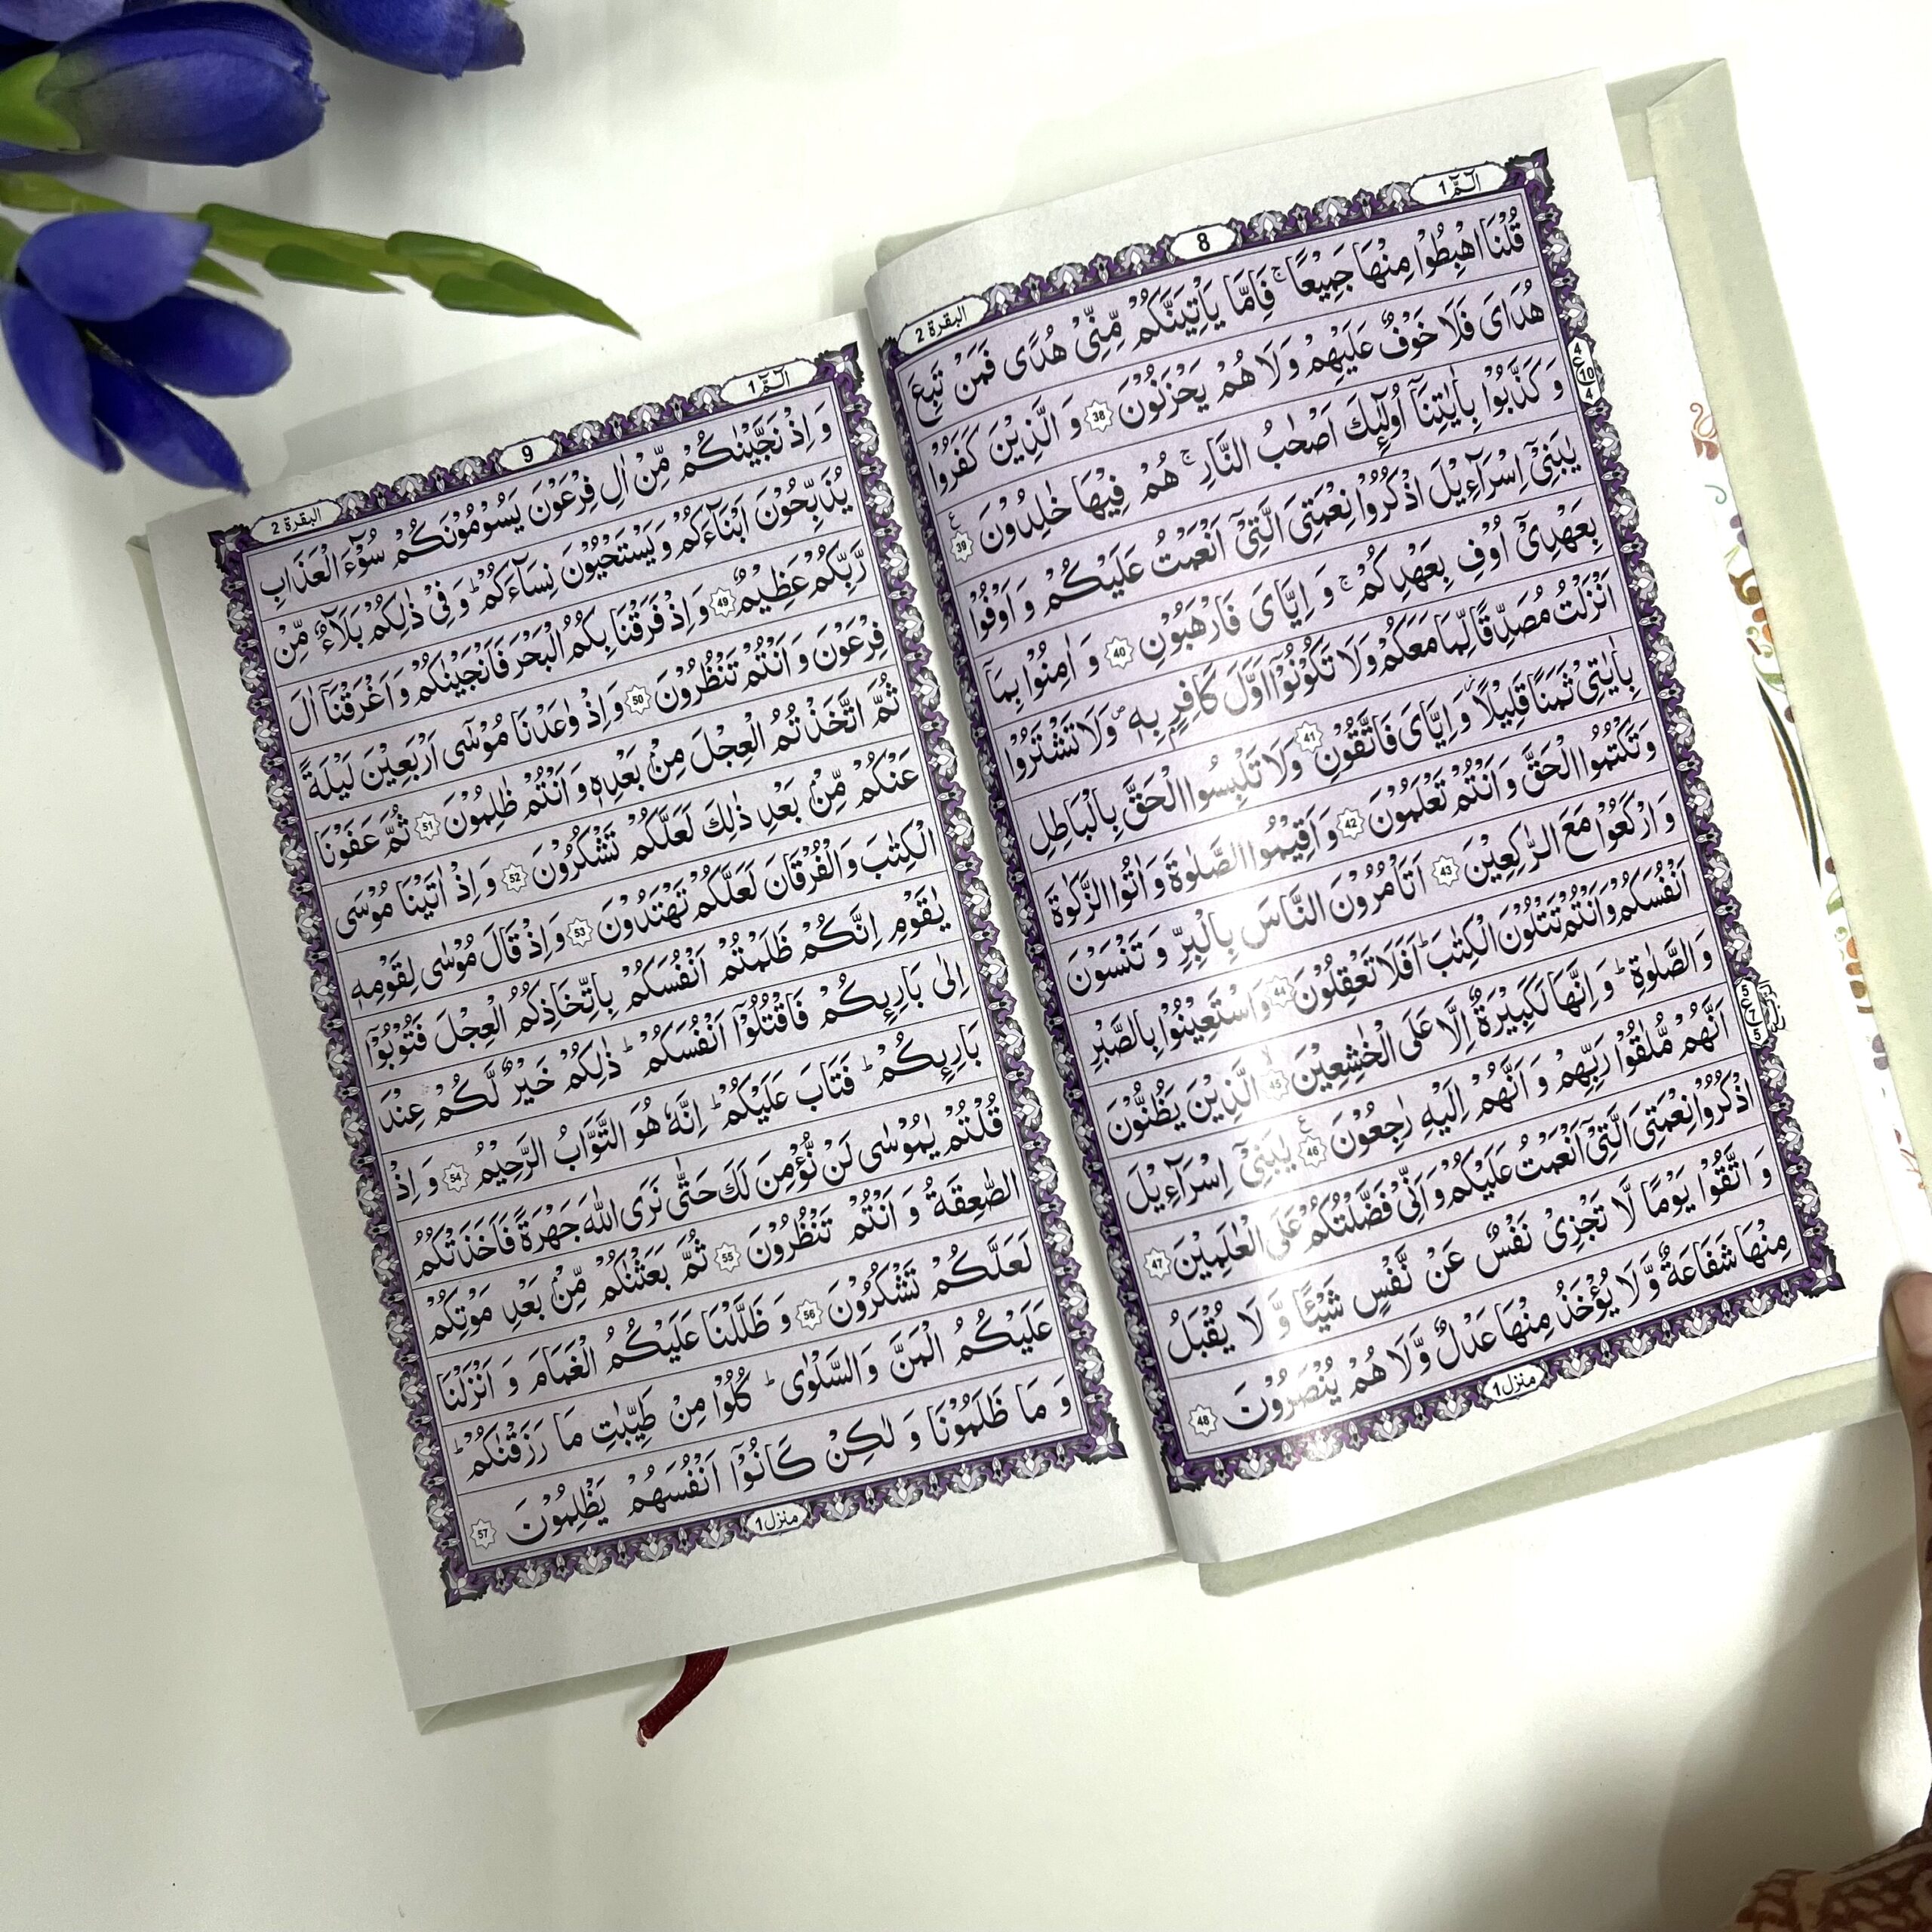 الٓمّٓ 1
8
البقرة 2
قُلْنَا اهْبِطُوْا مِنْهَا جَمِيْعًا ۚ فَاِمَّا يَاْتِيَنَّكُمْ مِّنِّيْ هُدًى فَمَنْ تَبِعَ
هُدَايَ فَلَا خَوْفٌ عَلَيْهِمْ وَلَا هُمْ يَحْزَنُوْنَ 38 وَ الَّذِيْنَ كَفَرُوْا
وَ كَذَّبُوْا بِاٰيٰتِنَاۤ اُولٰٓئِكَ اَصْحٰبُ النَّارِ ۚ هُمْ فِيْهَا خٰلِدُوْنَ ع 39
4
ع 10
4
يٰبَنِيْۤ اِسْرَآءِيْلَ اذْكُرُوْا نِعْمَتِيَ الَّتِيْۤ اَنْعَمْتُ عَلَيْكُمْ وَ اَوْفُوْا
بِعَهْدِيْۤ اُوْفِ بِعَهْدِكُمْ ۚ وَ اِيَّايَ فَارْهَبُوْنِ 40 وَ اٰمِنُوْا بِمَاۤ
اَنْزَلْتُ مُصَدِّقًا لِّمَا مَعَكُمْ وَلَا تَكُوْنُوْۤا اَوَّلَ كَافِرٍۭ بِهٖ ۪ وَلَا تَشْتَرُوْا
بِاٰيٰتِيْ ثَمَنًا قَلِيْلًا ؗ وَ اِيَّايَ فَاتَّقُوْنِ 41 وَلَا تَلْبِسُوا الْحَقَّ بِالْبَاطِلِ
وَتَكْتُمُوا الْحَقَّ وَ اَنْتُمْ تَعْلَمُوْنَ 42 وَ اَقِيْمُوا الصَّلٰوةَ وَ اٰتُوا الزَّكٰوةَ
وَ ارْكَعُوْا مَعَ الرّٰكِعِيْنَ 43 اَتَاْمُرُوْنَ النَّاسَ بِالْبِرِّ وَ تَنْسَوْنَ
اَنْفُسَكُمْ وَ اَنْتُمْ تَتْلُوْنَ الْكِتٰبَ ؕ اَفَلَا تَعْقِلُوْنَ 44 وَ اسْتَعِيْنُوْا بِالصَّبْرِ
وَ الصَّلٰوةِ ؕ وَ اِنَّهَا لَكَبِيْرَةٌ اِلَّا عَلَى الْخٰشِعِيْنَ 45 الَّذِيْنَ يَظُنُّوْنَ
5
ع 7
5
اَنَّهُمْ مُّلٰقُوْا رَبِّهِمْ وَ اَنَّهُمْ اِلَيْهِ رٰجِعُوْنَ ع 46 يٰبَنِيْۤ اِسْرَآءِيْلَ
اذْكُرُوْا نِعْمَتِيَ الَّتِيْۤ اَنْعَمْتُ عَلَيْكُمْ وَ اَنِّيْ فَضَّلْتُكُمْ عَلَى الْعٰلَمِيْنَ 47
وَ اتَّقُوْا يَوْمًا لَّا تَجْزِيْ نَفْسٌ عَنْ نَّفْسٍ شَيْـًٔا وَّ لَا يُقْبَلُ
مِنْهَا شَفَاعَةٌ وَّ لَا يُؤْخَذُ مِنْهَا عَدْلٌ وَّ لَا هُمْ يُنْصَرُوْنَ 48
منزل 1
الٓمّٓ 1
9
البقرة 2
وَ اِذْ نَجَّيْنٰكُمْ مِّنْ اٰلِ فِرْعَوْنَ يَسُوْمُوْنَكُمْ سُوْٓءَ الْعَذَابِ
يُذَبِّحُوْنَ اَبْنَآءَكُمْ وَ يَسْتَحْيُوْنَ نِسَآءَكُمْ ؕ وَ فِيْ ذٰلِكُمْ بَلَآءٌ مِّنْ
رَّبِّكُمْ عَظِيْمٌ 49 وَ اِذْ فَرَقْنَا بِكُمُ الْبَحْرَ فَاَنْجَيْنٰكُمْ وَ اَغْرَقْنَاۤ اٰلَ
فِرْعَوْنَ وَ اَنْتُمْ تَنْظُرُوْنَ 50 وَ اِذْ وٰعَدْنَا مُوْسٰۤى اَرْبَعِيْنَ لَيْلَةً
ثُمَّ اتَّخَذْتُمُ الْعِجْلَ مِنْۢ بَعْدِهٖ وَ اَنْتُمْ ظٰلِمُوْنَ 51 ثُمَّ عَفَوْنَا
عَنْكُمْ مِّنْۢ بَعْدِ ذٰلِكَ لَعَلَّكُمْ تَشْكُرُوْنَ 52 وَ اِذْ اٰتَيْنَا مُوْسَى
الْكِتٰبَ وَ الْفُرْقَانَ لَعَلَّكُمْ تَهْتَدُوْنَ 53 وَ اِذْ قَالَ مُوْسٰى لِقَوْمِهٖ
يٰقَوْمِ اِنَّكُمْ ظَلَمْتُمْ اَنْفُسَكُمْ بِاتِّخَاذِكُمُ الْعِجْلَ فَتُوْبُوْۤا
اِلٰى بَارِىِٕكُمْ فَاقْتُلُوْۤا اَنْفُسَكُمْ ؕ ذٰلِكُمْ خَيْرٌ لَّكُمْ عِنْدَ
بَارِىِٕكُمْ ؕ فَتَابَ عَلَيْكُمْ ؕ اِنَّهٗ هُوَ التَّوَّابُ الرَّحِيْمُ 54 وَ اِذْ
قُلْتُمْ يٰمُوْسٰى لَنْ نُّؤْمِنَ لَكَ حَتّٰى نَرَى اللّٰهَ جَهْرَةً فَاَخَذَتْكُمُ
الصّٰعِقَةُ وَ اَنْتُمْ تَنْظُرُوْنَ 55 ثُمَّ بَعَثْنٰكُمْ مِّنْۢ بَعْدِ مَوْتِكُمْ
لَعَلَّكُمْ تَشْكُرُوْنَ 56 وَ ظَلَّلْنَا عَلَيْكُمُ الْغَمَامَ وَ اَنْزَلْنَا
عَلَيْكُمُ الْمَنَّ وَ السَّلْوٰى ؕ كُلُوْا مِنْ طَيِّبٰتِ مَا رَزَقْنٰكُمْ ؕ
وَ مَا ظَلَمُوْنَا وَ لٰكِنْ كَانُوْۤا اَنْفُسَهُمْ يَظْلِمُوْنَ 57
منزل 1